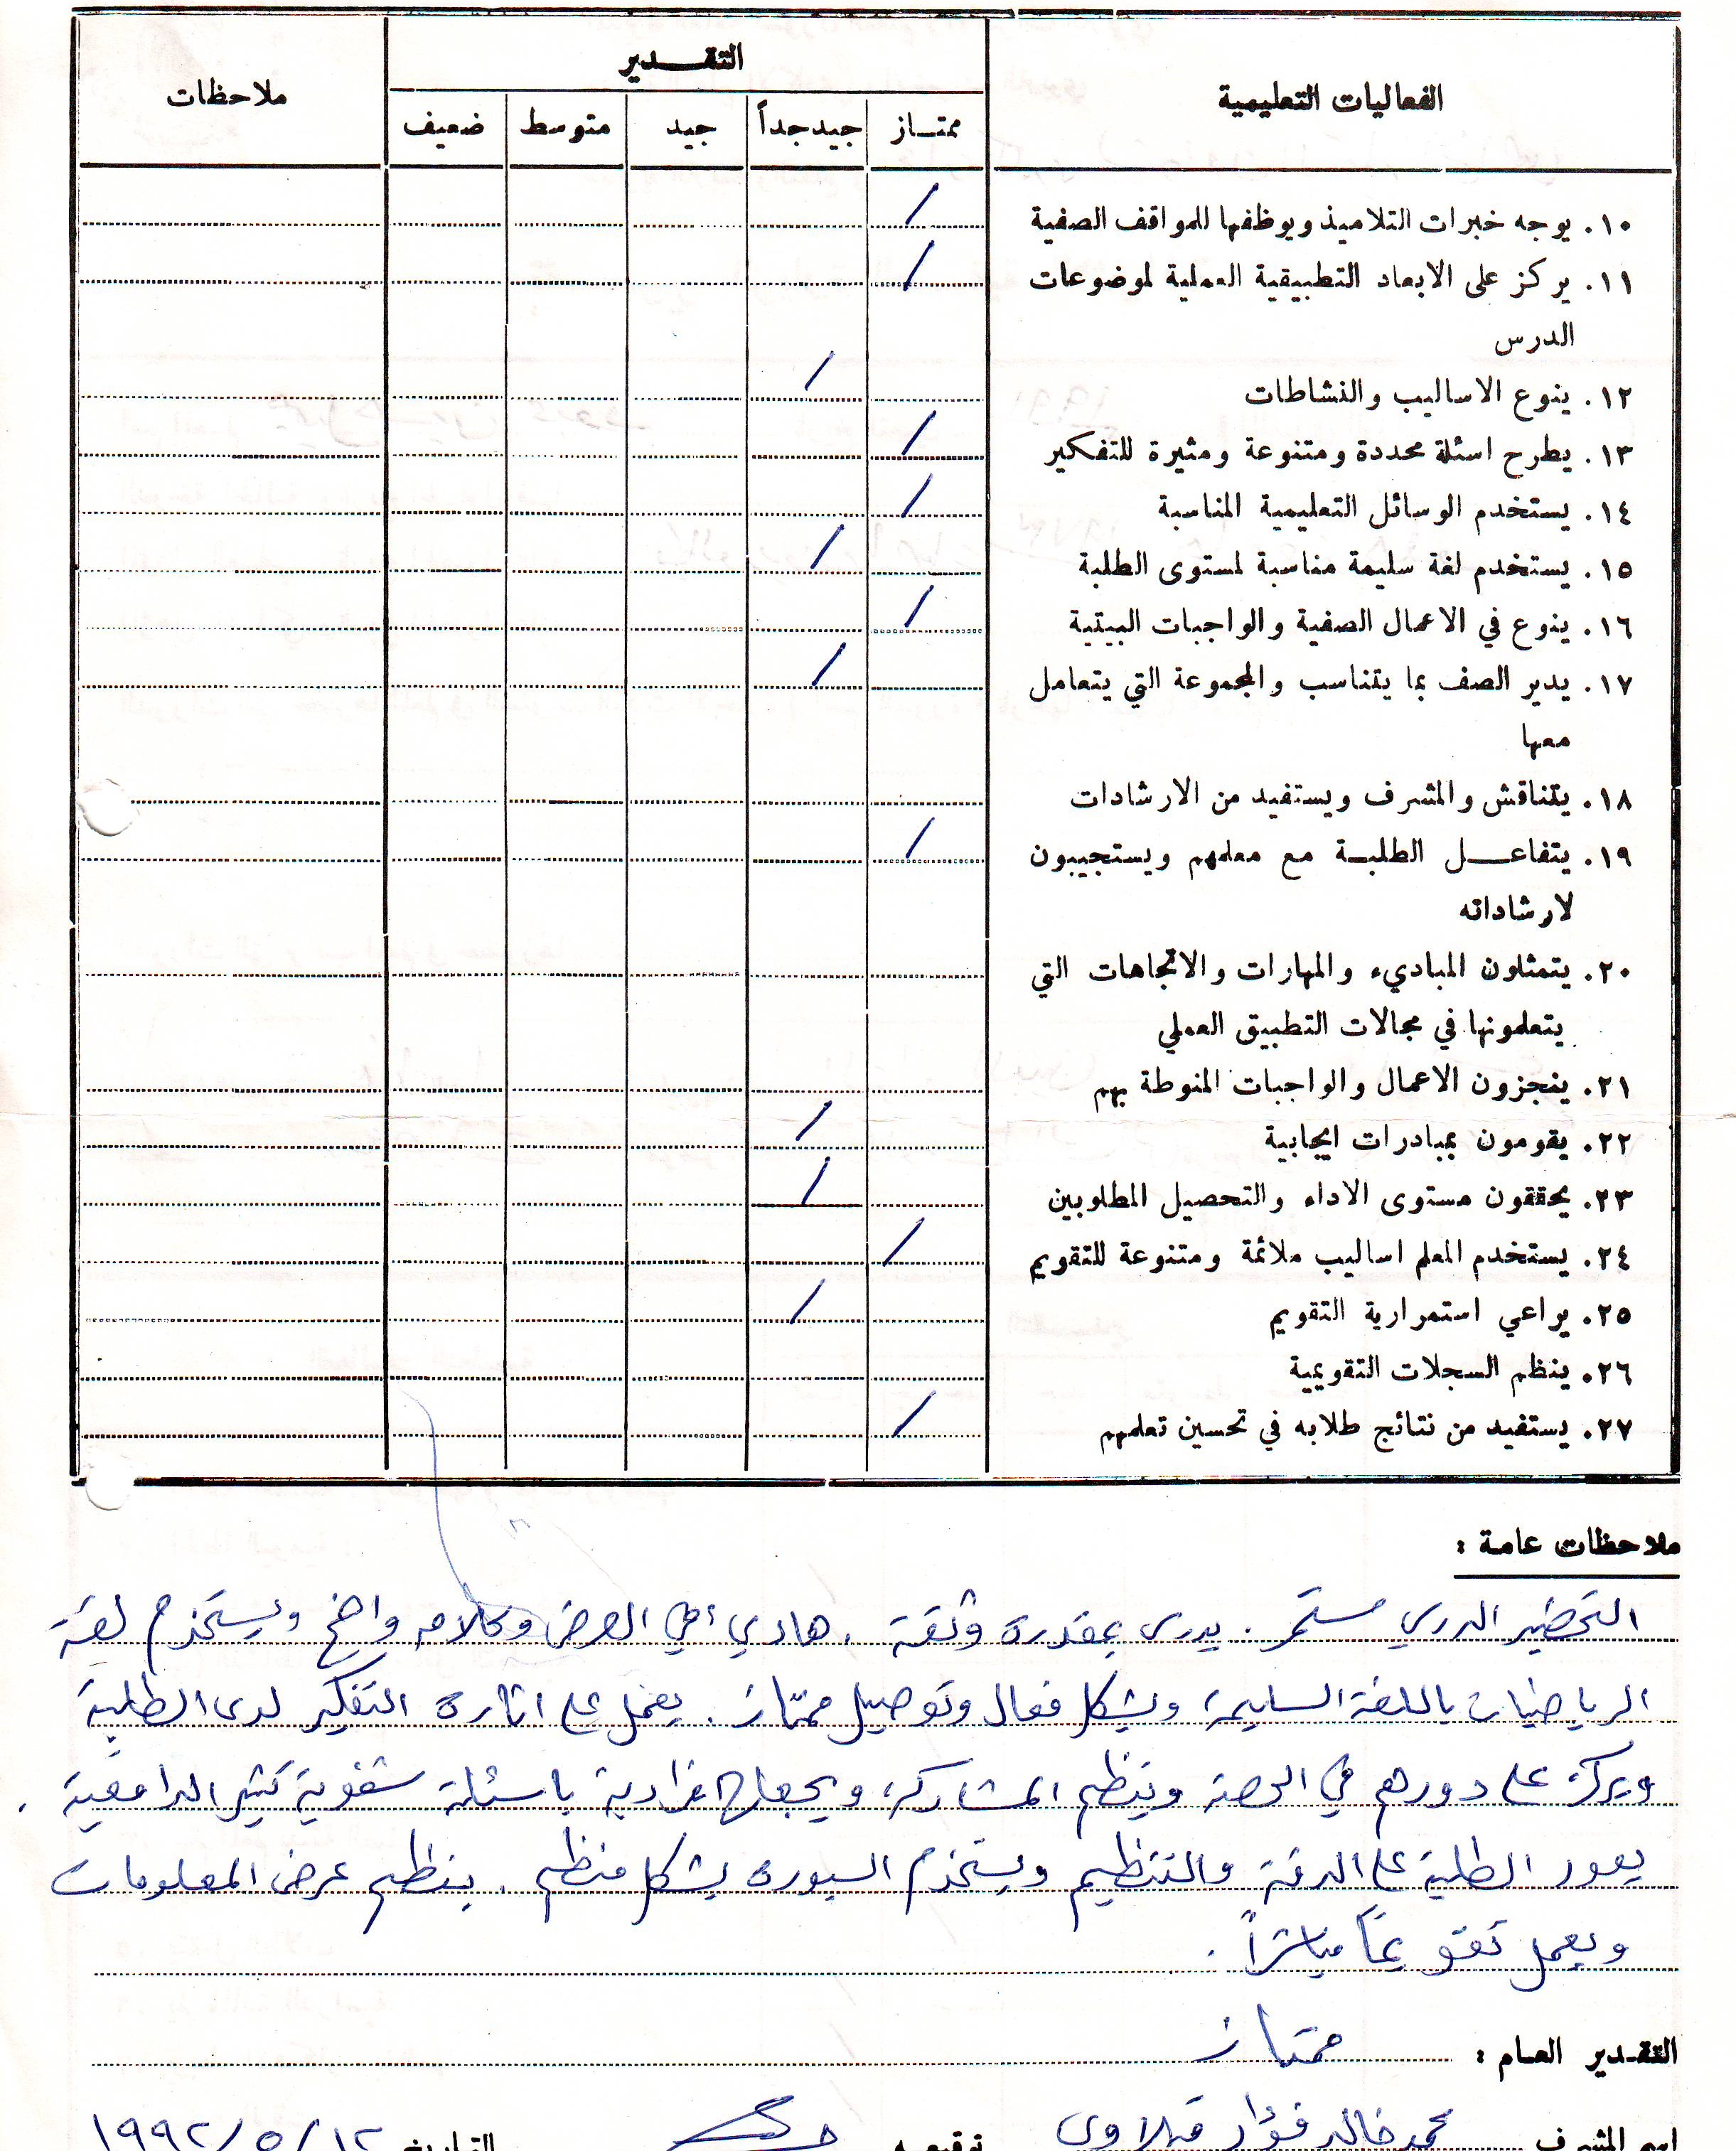 الفعاليات التعليمية
التقـــدير
ملاحظات
ممتـاز
جيد جداً
جيد
متوسط
ضعيف
١٠. يوجه خبرات التلاميذ ويوظفها للمواقف الصفية
١١. يركز على الابعاد التطبيقية العملية لموضوعات
الدرس
١٢. ينوع الاساليب والنشاطات
١٣. يطرح اسئلة محددة ومتنوعة ومثيرة للتفكير
١٤. يستخدم الوسائل التعليمية المناسبة
١٥. يستخدم لغة سليمة مناسبة لمستوى الطلبة
١٦. ينوع في الاعمال الصفية والواجبات البيتية
١٧. يدير الصف بما يتناسب والمجموعة التي يتعامل
معها
١٨. يتناقش والمشرف ويستفيد من الارشادات
١٩. يتفاعـــل الطلبــة مع معلمهم ويستجيبون
لارشاداته
٢٠. يتمثلون المباديء والمهارات والاتجاهات التي
يتعلمونها في مجالات التطبيق العملي
٢١. ينجزون الاعمال والواجبات المنوطة بهم
٢٢. يقومون بمبادرات ايجابية
٢٣. يحققون مستوى الاداء والتحصيل المطلوبين
٢٤. يستخدم المعلم اساليب ملائمة ومتنوعة للتقويم
٢٥. يراعي استمرارية التقويم
٢٦. ينظم السجلات التقويمية
٢٧. يستفيد من نتائج طلابه في تحسين تعلمهم
ملاحظات عامـة :
التحضير الدرسي مستمر. يدرس بمقدرة وثقة. هادي في العرض وكلامه واضح ويستخدم لغة
الرياضيات باللغة السليمة وبشكل فعال وتوصيل ممتاز. يعمل على اثارة التفكير لدى الطلبة
ويركز على دورهم في الحصة وينظم المشاركة ويجعلها افرادية باسئلة شفوية تثير الدافعية.
يعود الطلبة على الدقة والتنظيم ويستخدم السبورة بشكل منظم. ينظم عرض المعلومات
ويعمل تقويماً مباشراً.
التقـدير العـام : ممتاز
اسم المشرف محمد خالد فؤاد توقيعـه التـاريخ ١٩٩٢/٥/١٢